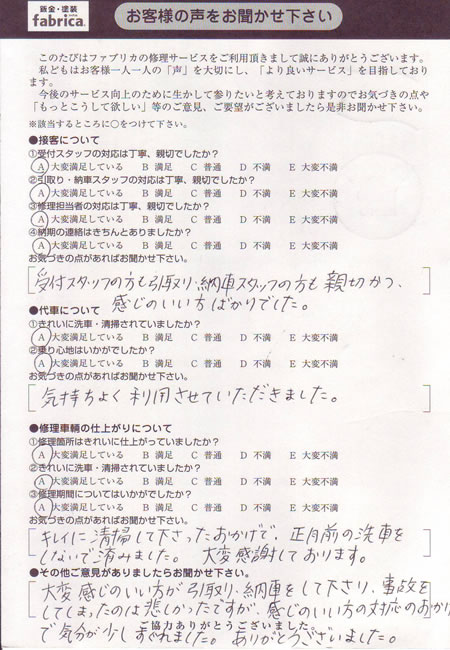 鈑金・塗装
fabrica.
お客様の声をお聞かせ下さい
このたびはファブリカの修理サービスをご利用頂きまして誠にありがとうございます。
私どもはお客様一人一人の「声」を大切にし、「より良いサービス」を目指しており
ます。
今後のサービス向上のために生かして参りたいと考えておりますのでお気づきの点や
「もっとこうして欲しい」等のご意見、ご要望がございましたら是非お聞かせ下さい。
※該当するところに○をつけて下さい。
●接客について
①受付スタッフの対応は丁寧、親切でしたか？
A 大変満足している B 満足 C 普通 D 不満 E 大変不満
②引取り・納車スタッフの対応は丁寧、親切でしたか？
A 大変満足している B 満足 C 普通 D 不満 E 大変不満
③修理担当者の対応は丁寧、親切でしたか？
A 大変満足している B 満足 C 普通 D 不満 E 大変不満
④納期の連絡はきちんとありましたか？
A 大変満足している B 満足 C 普通 D 不満 E 大変不満
お気づきの点があればお聞かせ下さい。
受付スタッフの方も引取り、納車スタッフの方も親切かつ、
感じのいい方ばかりでした。
●代車について
①きれいに洗車・清掃されていましたか？
A 大変満足している B 満足 C 普通 D 不満 E 大変不満
②乗り心地はいかがでしたか？
A 大変満足している B 満足 C 普通 D 不満 E 大変不満
お気づきの点があればお聞かせ下さい。
気持ちよく利用させていただきました。
●修理車輌の仕上がりについて
①修理箇所はきれいに仕上がっていましたか？
A 大変満足している B 満足 C 普通 D 不満 E 大変不満
②きれいに洗車・清掃されていましたか？
A 大変満足している B 満足 C 普通 D 不満 E 大変不満
③修理期間についてはいかがでしたか？
A 大変満足している B 満足 C 普通 D 不満 E 大変不満
お気づきの点があればお聞かせ下さい。
キレイに清掃して下さったおかげで、正月前の洗車を
しないで済みました。大変感謝しております。
●その他ご意見がありましたらお聞かせ下さい。
大変感じのいい方が引取り、納車をして下さり、事故を
してしまったのは悲しかったですが、感じのいい方の対応のおかげ
で気分が少しすぐれました。ありがとうございました。
ご協力ありがとうございました